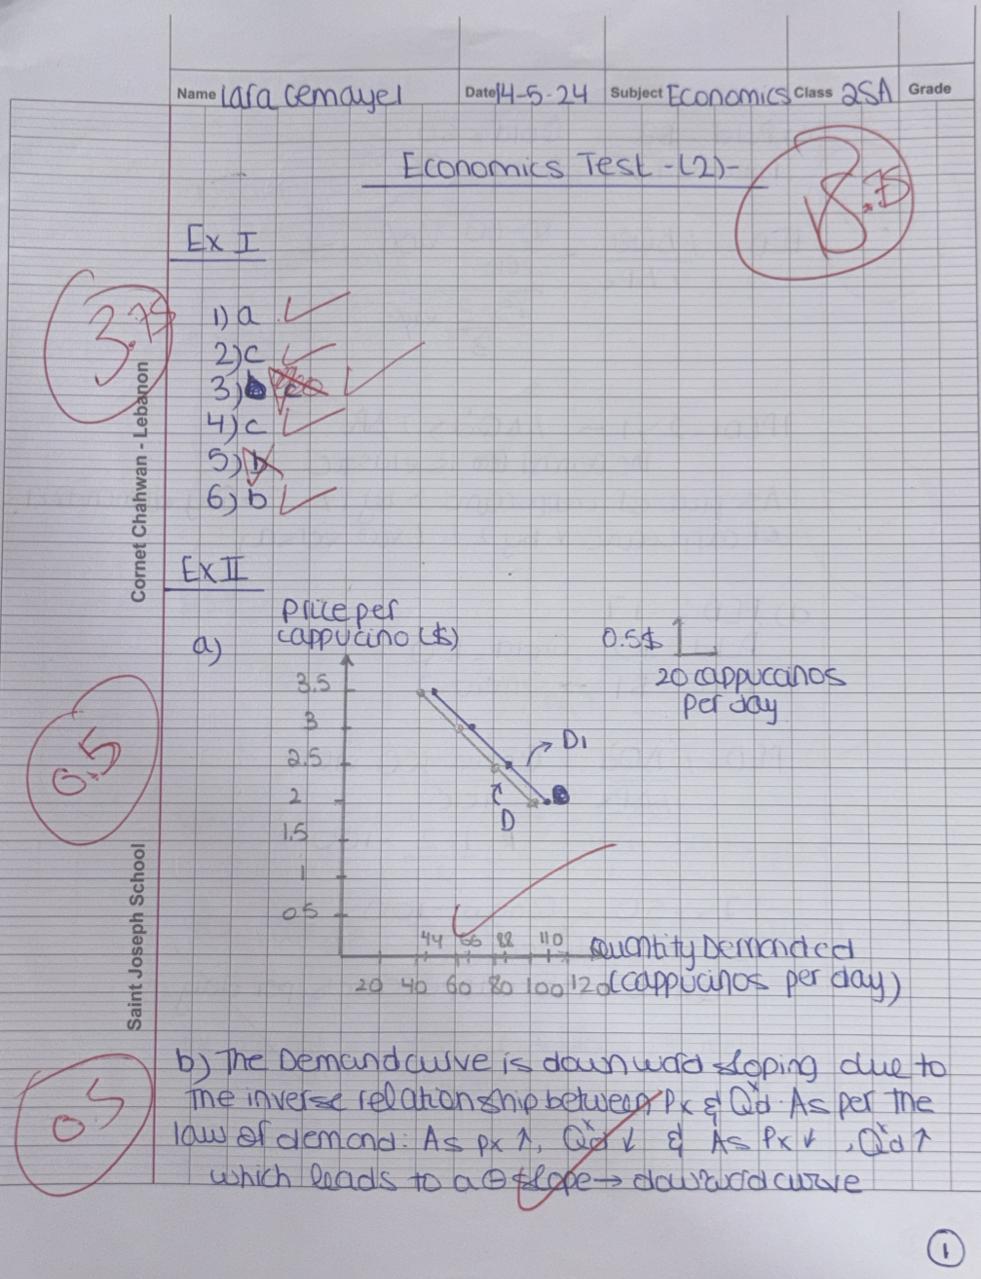 Name Lara Gemayel Date 14-5-24 Subject Economics Class 2SA Grade
Economics Test -(2)-
18.75
Ex I
3.75
1) a
2) c
3)
4) c
5) b
6) b
Cornet Chahwan - Lebanon
Saint Joseph School
Ex II
a)
Price per
cappucino ($)
0.5$
20 cappuccinos
per day
3.5
3
2.5
2
1.5
1
0.5
D1
D
44 66 88 110
20 40 60 80 100 120
Quantity Demanded
(cappucinos per day)
0.5
b) The Demand curve is downward sloping due to
the inverse relationship between Px & Qxd. As per the
law of demand: As px ↑, Qxd ↓ & As Px ↓, Qxd ↑
which leads to a ⊖ slope → downward curve
0.5
1